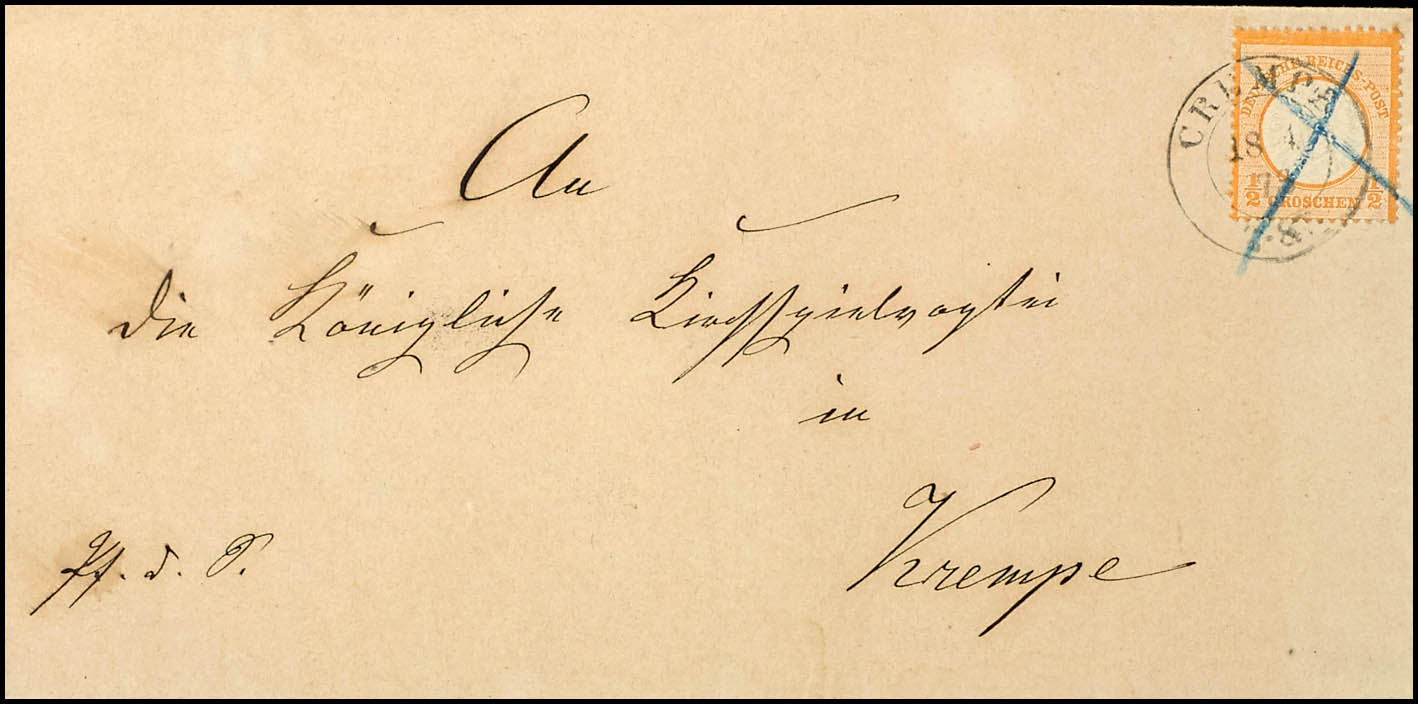 An
die Königliche Kirchspielvogtei
in
Krempe
DEUTSCHE REICHS-POST
1/2 GROSCHEN 1/2
CREMPE
18